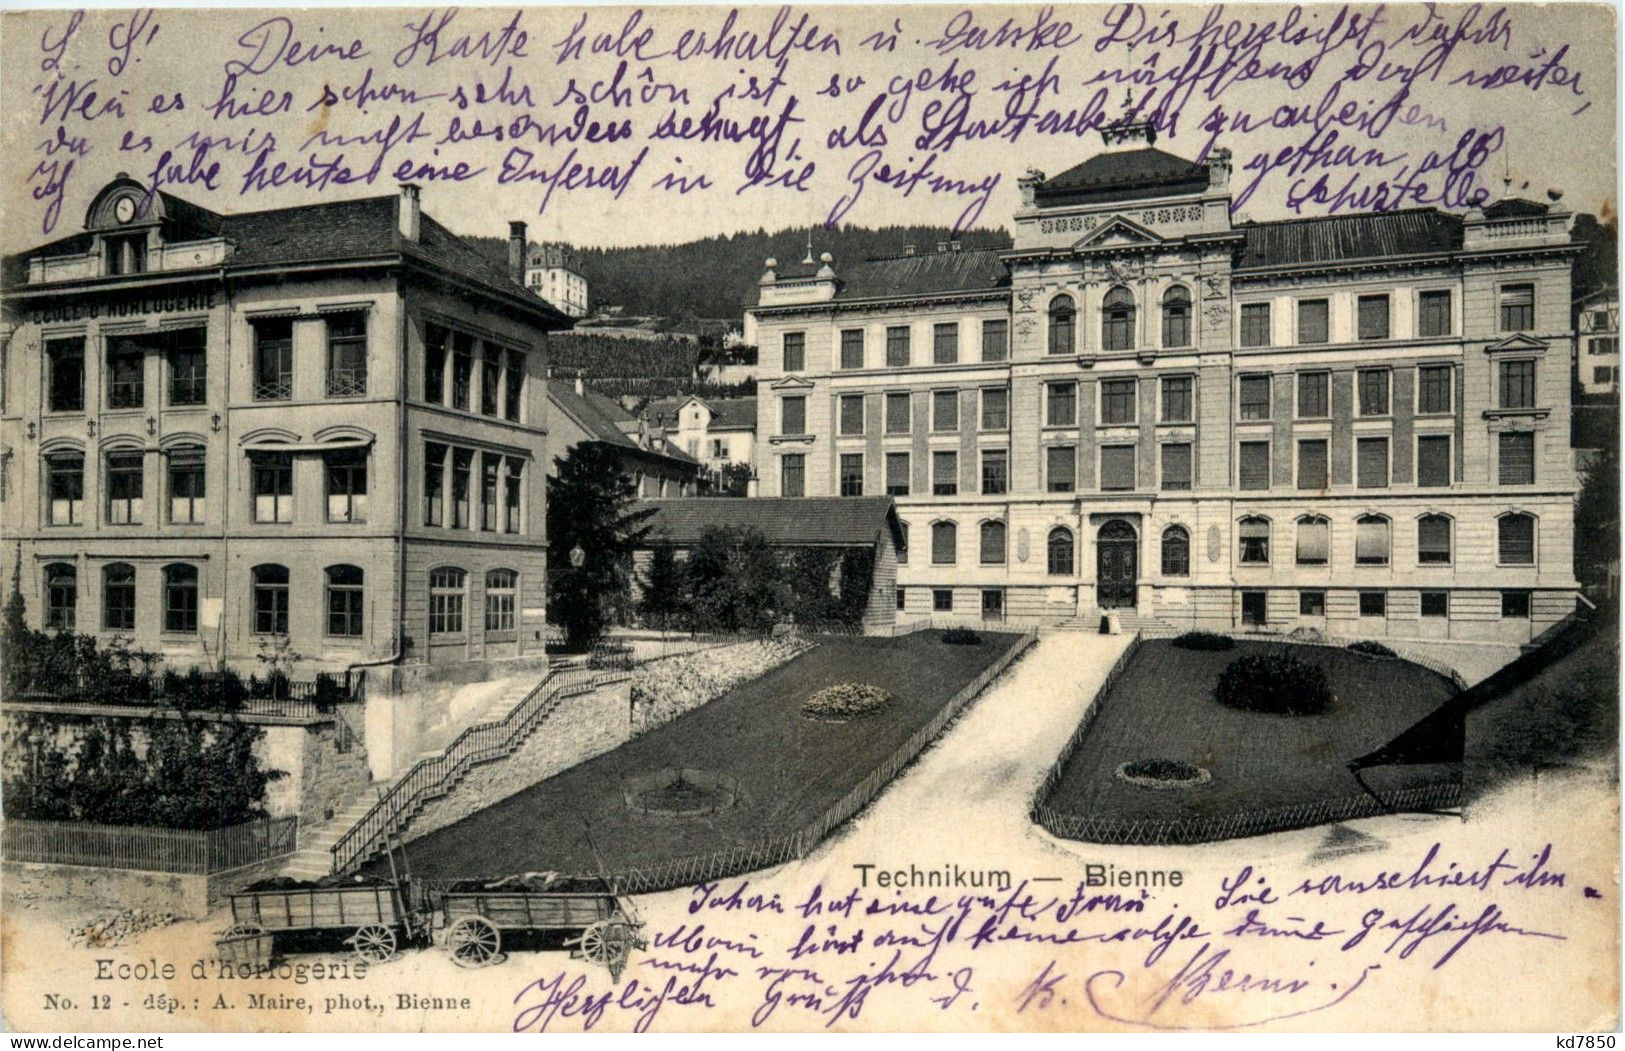 L. S.! Deine Karte habe erhalten u. danke Dir herzlichst dafür
Wen es hier schon sehr schön ist, so gehe ich nächstens doch weiter,
da es mir nicht besonders behagt, als Stadtarbeiter zu arbeiten
Ich habe heute eine Inserat in die Zeitung gethan, als
ECOLE D'HORLOGERIE
Technikum — Bienne
Johan hat eine gute Frau. Sie
Man hört auch keine solche Geschichten
mehr von ihm.
Herzlichen Gruß d. K.
Ecole d'horlogerie
No. 12 - dép.: A. Maire, phot., Bienne
kd7850